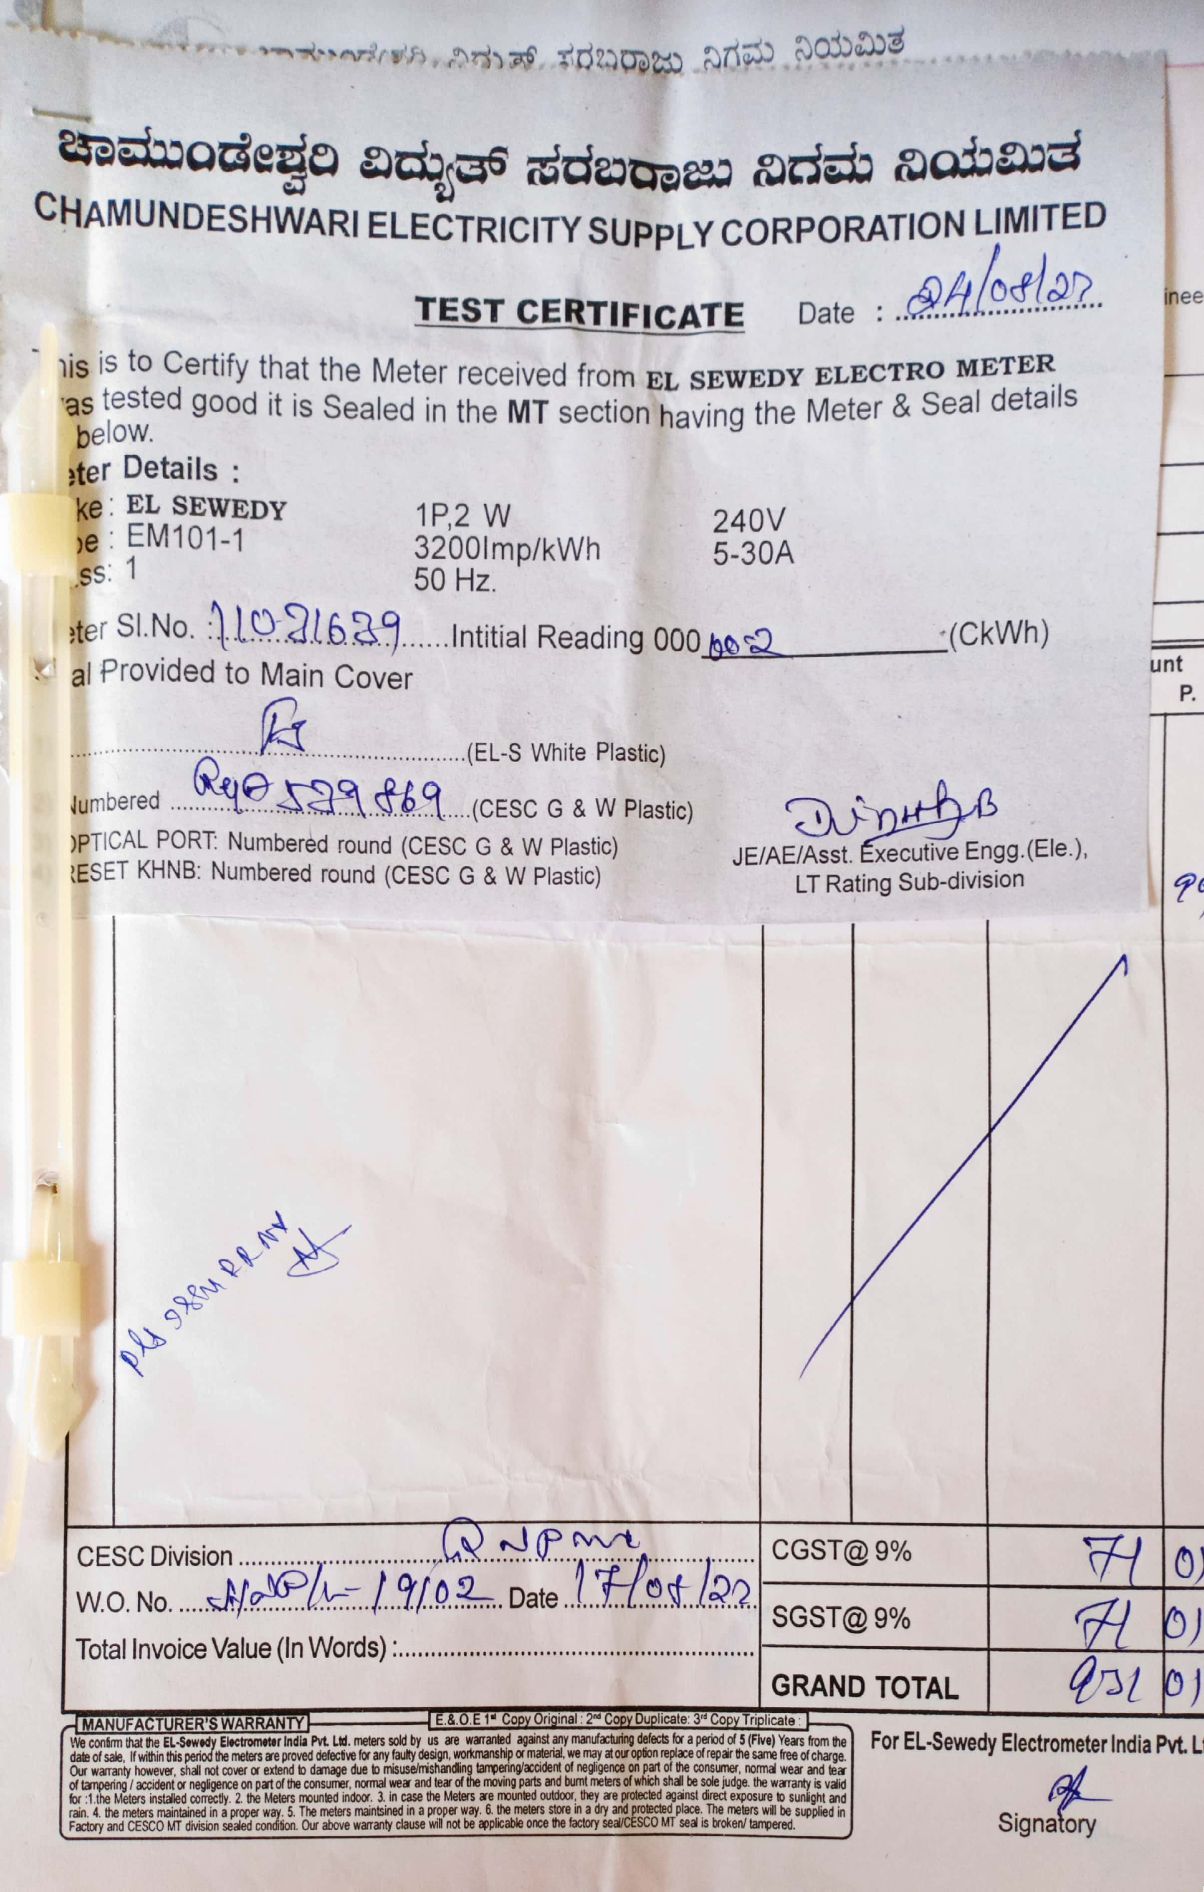 ಚಾಮುಂಡೇಶ್ವರಿ ವಿದ್ಯುತ್ ಸರಬರಾಜು ನಿಗಮ ನಿಯಮಿತ
ಚಾಮುಂಡೇಶ್ವರಿ ವಿದ್ಯುತ್ ಸರಬರಾಜು ನಿಗಮ ನಿಯಮಿತ
CHAMUNDESHWARI ELECTRICITY SUPPLY CORPORATION LIMITED
TEST CERTIFICATE Date : 24/08/22
inee
his is to Certify that the Meter received from EL SEWEDY ELECTRO METER
as tested good it is Sealed in the MT section having the Meter & Seal details
below.
eter Details :
ke: EL SEWEDY 1P,2 W 240V
pe : EM101-1 3200Imp/kWh 5-30A
ss: 1 50 Hz.
eter Sl.No. : 11021639 Intitial Reading 000 002 (CkWh)
al Provided to Main Cover
unt
P.
(EL-S White Plastic)
Numbered 539869 (CESC G & W Plastic)
OPTICAL PORT: Numbered round (CESC G & W Plastic)
RESET KHNB: Numbered round (CESC G & W Plastic)
JE/AE/Asst. Executive Engg.(Ele.),
LT Rating Sub-division
CESC Division
CGST@ 9% 71 01
W.O. No. 19102 Date 17/08/22
SGST@ 9% 71 01
Total Invoice Value (In Words) :
GRAND TOTAL 931 01
MANUFACTURER'S WARRANTY E.&.O.E 1st Copy Original : 2nd Copy Duplicate: 3rd Copy Triplicate :
We confirm that the EL-Sewedy Electrometer India Pvt. Ltd. meters sold by us are warranted against any manufacturing defects for a period of 5 (Five) Years from the
date of sale, If within this period the meters are proved defective for any faulty design, workmanship or material, we may at our option replace of repair the same free of charge.
Our warranty however, shall not cover or extend to damage due to misuse/mishandling tampering/accident of negligence on part of the consumer, normal wear and tear
of tampering / accident or negligence on part of the consumer, normal wear and tear of the moving parts and burnt meters of which shall be sole judge. the warranty is valid
for :1.the Meters installed correctly. 2. the Meters mounted indoor. 3. in case the Meters are mounted outdoor, they are protected against direct exposure to sunlight and
rain. 4. the meters maintained in a proper way. 5. The meters maintsined in a proper way. 6. the meters store in a dry and protected place. The meters will be supplied in
Factory and CESCO MT division sealed condition. Our above warranty clause will not be applicable once the factory seal/CESCO MT seal is broken/ tampered.
For EL-Sewedy Electrometer India Pvt. Lt
Signatory